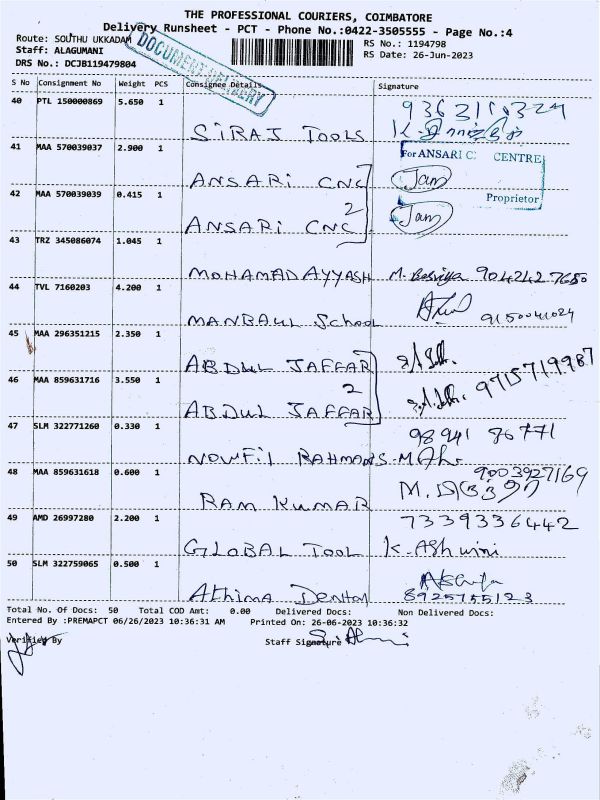 THE PROFESSIONAL COURIERS, COIMBATORE
Delivery Runsheet - PCT - Phone No.:0422-3505555 - Page No.:4
Route: SOUTHU UKKADAM
RS No.: 1194798
Staff: ALAGUMANI
RS Date: 26-Jun-2023
DRS No.: DCJB119479804
DOCUMENT DELIVERY
S No Consignment No Weight PCS Consignee Details Signature
40 PTL 150000869 5.650 1
SIRAJ TOOLS
41 MAA 570039037 2.900 1
For ANSARI C CENTRE
ANSARI CNC
42 MAA 570039039 0.415 1
2
Proprietor
ANSARI CNC
43 TRZ 345086074 1.045 1
MOHAMAD AYYASH 9042427680
44 TVL 7160203 4.200 1
MANBAUL School 9150041024
45 MAA 296351215 2.350 1
ABDUL JAFFAR
46 MAA 859631716 3.550 1
2
9715719987
ABDUL JAFFAR
47 SLM 322771260 0.330 1
98941 86771
NOWFIL RAHMAN
48 MAA 859631618 0.600 1
9003927169
RAM KUMAR
49 AMD 26997280 2.200 1
7339336442
GLOBAL TOOL K. Ashwini
50 SLM 322759065 0.500 1
Athima Dental 8925755123
Total No. Of Docs: 50 Total COD Amt: 0.00 Delivered Docs: Non Delivered Docs:
Entered By :PREMAPCT 06/26/2023 10:36:31 AM Printed On: 26-06-2023 10:36:32
Verified By Staff Signature